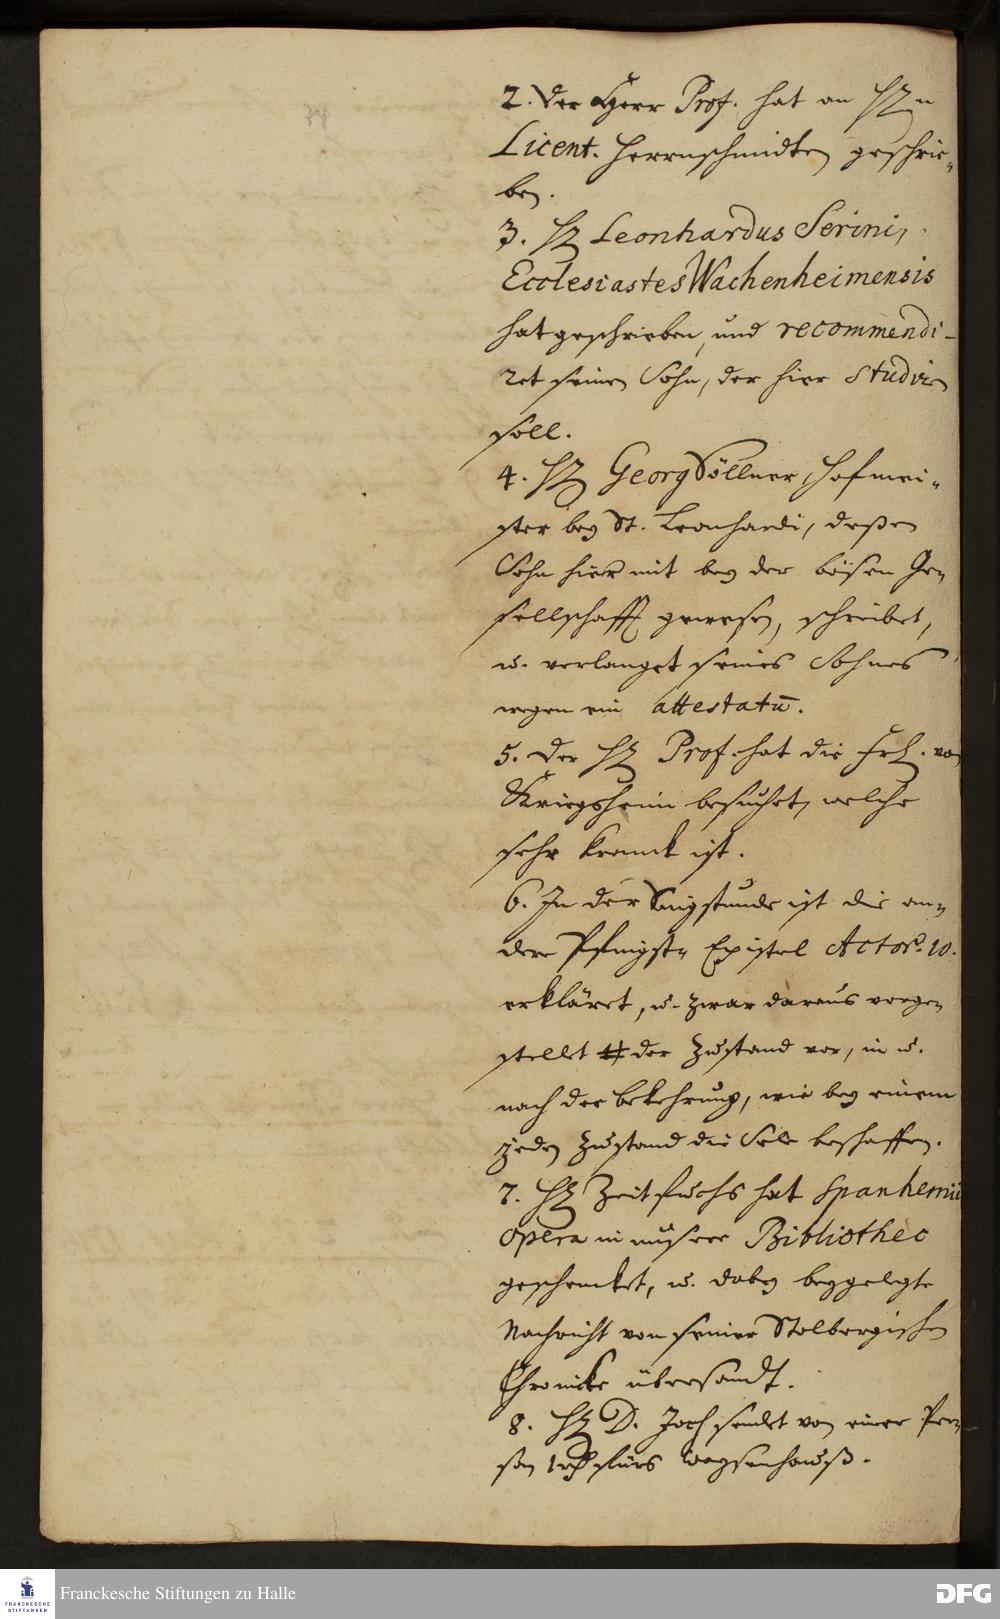 2. Der Herr Prof. hat an H.
Licent. Herrnschmidten geschrie-
ben.
3. H. Leonhardus Serini,
Ecclesiastes Wachenheimensis
hat geschrieben, und recommendi-
ret seinen Sohn, der hier studiren
soll.
4. H. Georg Söllner, Hofmei-
ster bey St. Leonhardi, deßen
Sohn hier mit bey der bösen Ge-
sellschafft gewesen, schreibet,
u. verlanget seines Sohnes
wegen ein attestatū.
5. Der H. Prof. hat die Frl. von
Kriegsheim besuchet, welche
sehr kranck ist.
6. In der Singstunde ist die an-
dere Pfingst- Epistel Actor. 10.
erkläret, u. zwar daraus vorge-
stellet der Zustand vor, in u.
nach der bekehrung, wie bey einem
jeden Zustand die Sele beschaffen.
7. H. Zeitfuchs hat Spanhemii
opera in unsere Bibliothec
geschencket, u. dabey beygelegte
Nachricht von seiner Stolbergischen
Chronicke übersandt.
8. H. D. Joch sendet von einer Per-
son 1 rth fürs Waysenhauß.
Franckesche Stiftungen zu Halle
FRANCKESCHE
STIFTUNGEN
DFG